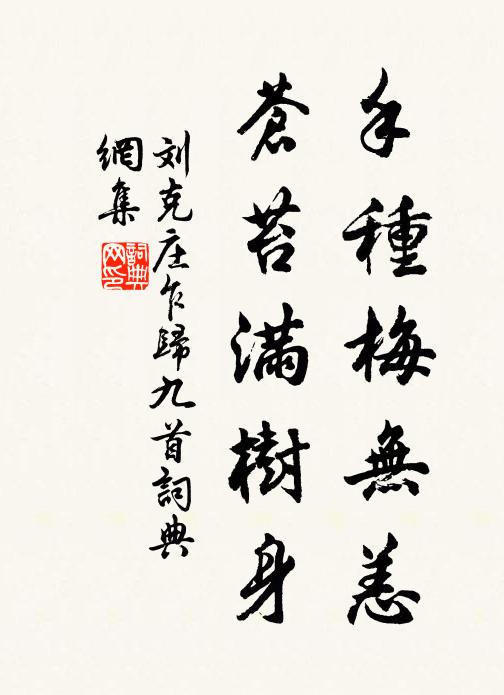 手種梅無恙
蒼苔滿樹身
刘克庄乍歸九首詞典
網集
詞典网印